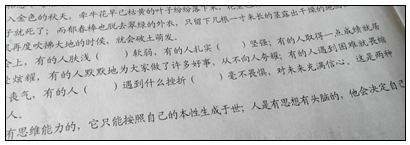 入金色的秋天，牵牛花早已枯黄的叶子纷纷落下来，花
子就死了；而郁春棒也脱去翠绿的外衣，只留下几根一寸来长的茎露出干燥的地
风再度吹拂大地的时候，就会破土萌发。
会上，有的人肤浅（ ）软弱，有的人扎实（ ）坚强；有的人取得一点成绩就居
炫耀，有的人默默地为大家做了许多好事，从不向人夸耀；有的人遇到困难就畏缩
丧气，有的人（ ）遇到什么挫折（ ）毫不畏惧，对未来充满信心。这是两种
人。
有思维能力的，它只能按照自己的本性生成于世；人是有思想有头脑的，他会决定自己